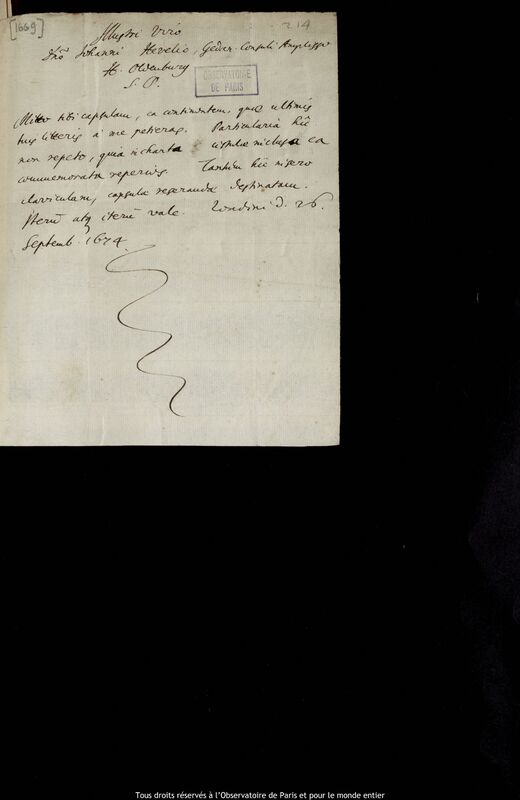 [1669]
214
Illustri Viro
Dno Johanni Hevelio, Gedan. Consuli Amplissimo
H. Oldenburg
S. P.
OBSERVATOIRE
DE PARIS
Mitto tibi capsulam, ea continentem, quæ ultimis
tuis literis à me petieras. Particularia hîc
non repeto, quia in charta cistulæ inclusa ea
commemorata reperies. Tantùm hîc insero
claviculam, capsulæ reserandæ destinatam.
Iterū atq iterū vale. Londini d. 26.
Septemb. 1674
Tous droits réservés à l'Observatoire de Paris et pour le monde entier